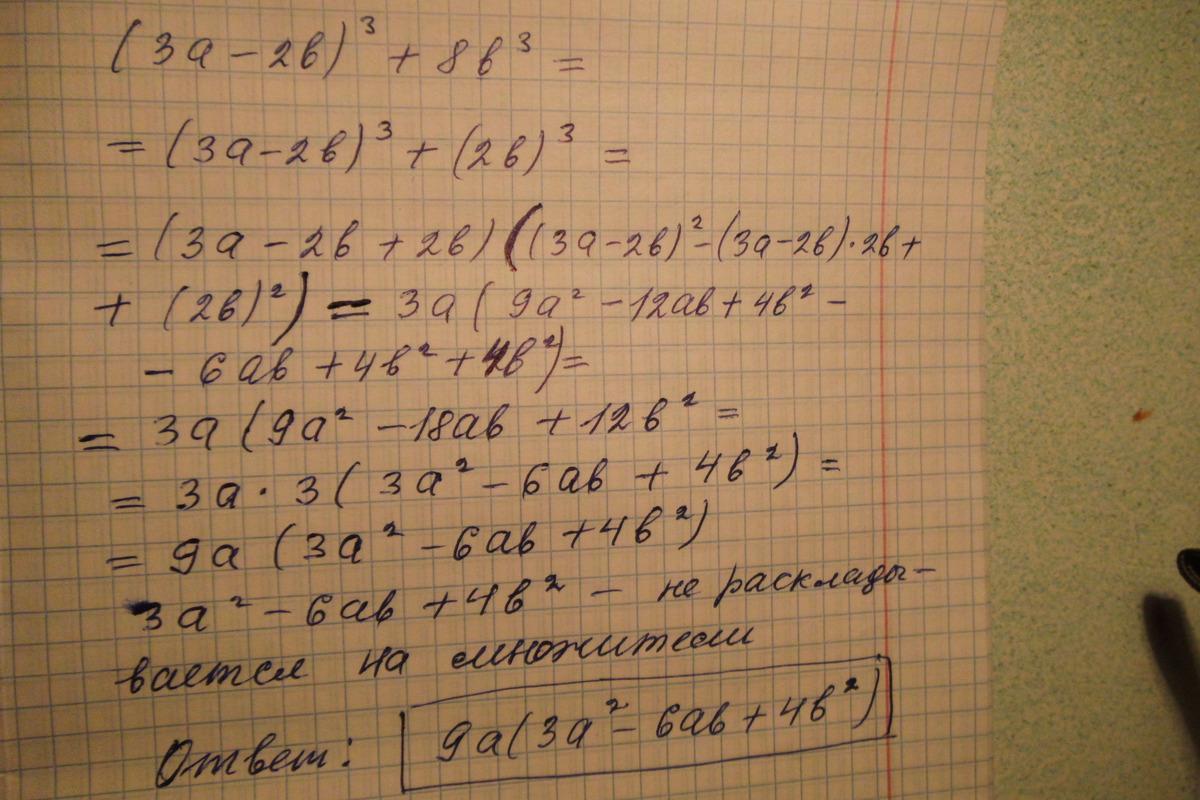 (3a-2b)³ + 8b³ =
= (3a-2b)³ + (2b)³ =
= (3a - 2b + 2b) ((3a-2b)² - (3a-2b)·2b +
+ (2b)²) = 3a (9a² - 12ab + 4b² -
- 6ab + 4b² + 4b²) =
= 3a (9a² - 18ab + 12b² =
= 3a · 3 (3a² - 6ab + 4b²) =
= 9a (3a² - 6ab + 4b²)
3a² - 6ab + 4b² - не расклады-
вается на множители
Ответ: 9a(3a² - 6ab + 4b²)